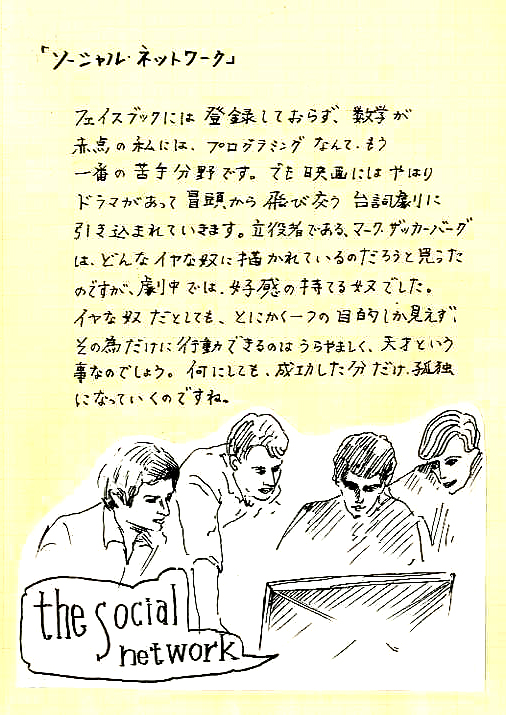 「ソーシャル・ネットワーク」
フェイスブックには登録しておらず、数学が
赤点の私には、プログラミングなんて、もう
一番の苦手分野です。でも映画にはやはり
ドラマがあって冒頭から飛び交う台詞劇に
引き込まれていきます。立役者である、マーク・ザッカーバーグ
は、どんなイヤな奴に描かれているのだろうと思った
のですが、劇中では、好感の持てる奴でした。
イヤな奴だとしても、とにかく一つの目的しか見えず、
その為だけに行動できるのはうらやましく、天才という
事なのでしょう。何にしても、成功した分だけ、孤独
になっていくのですね。
the social
network